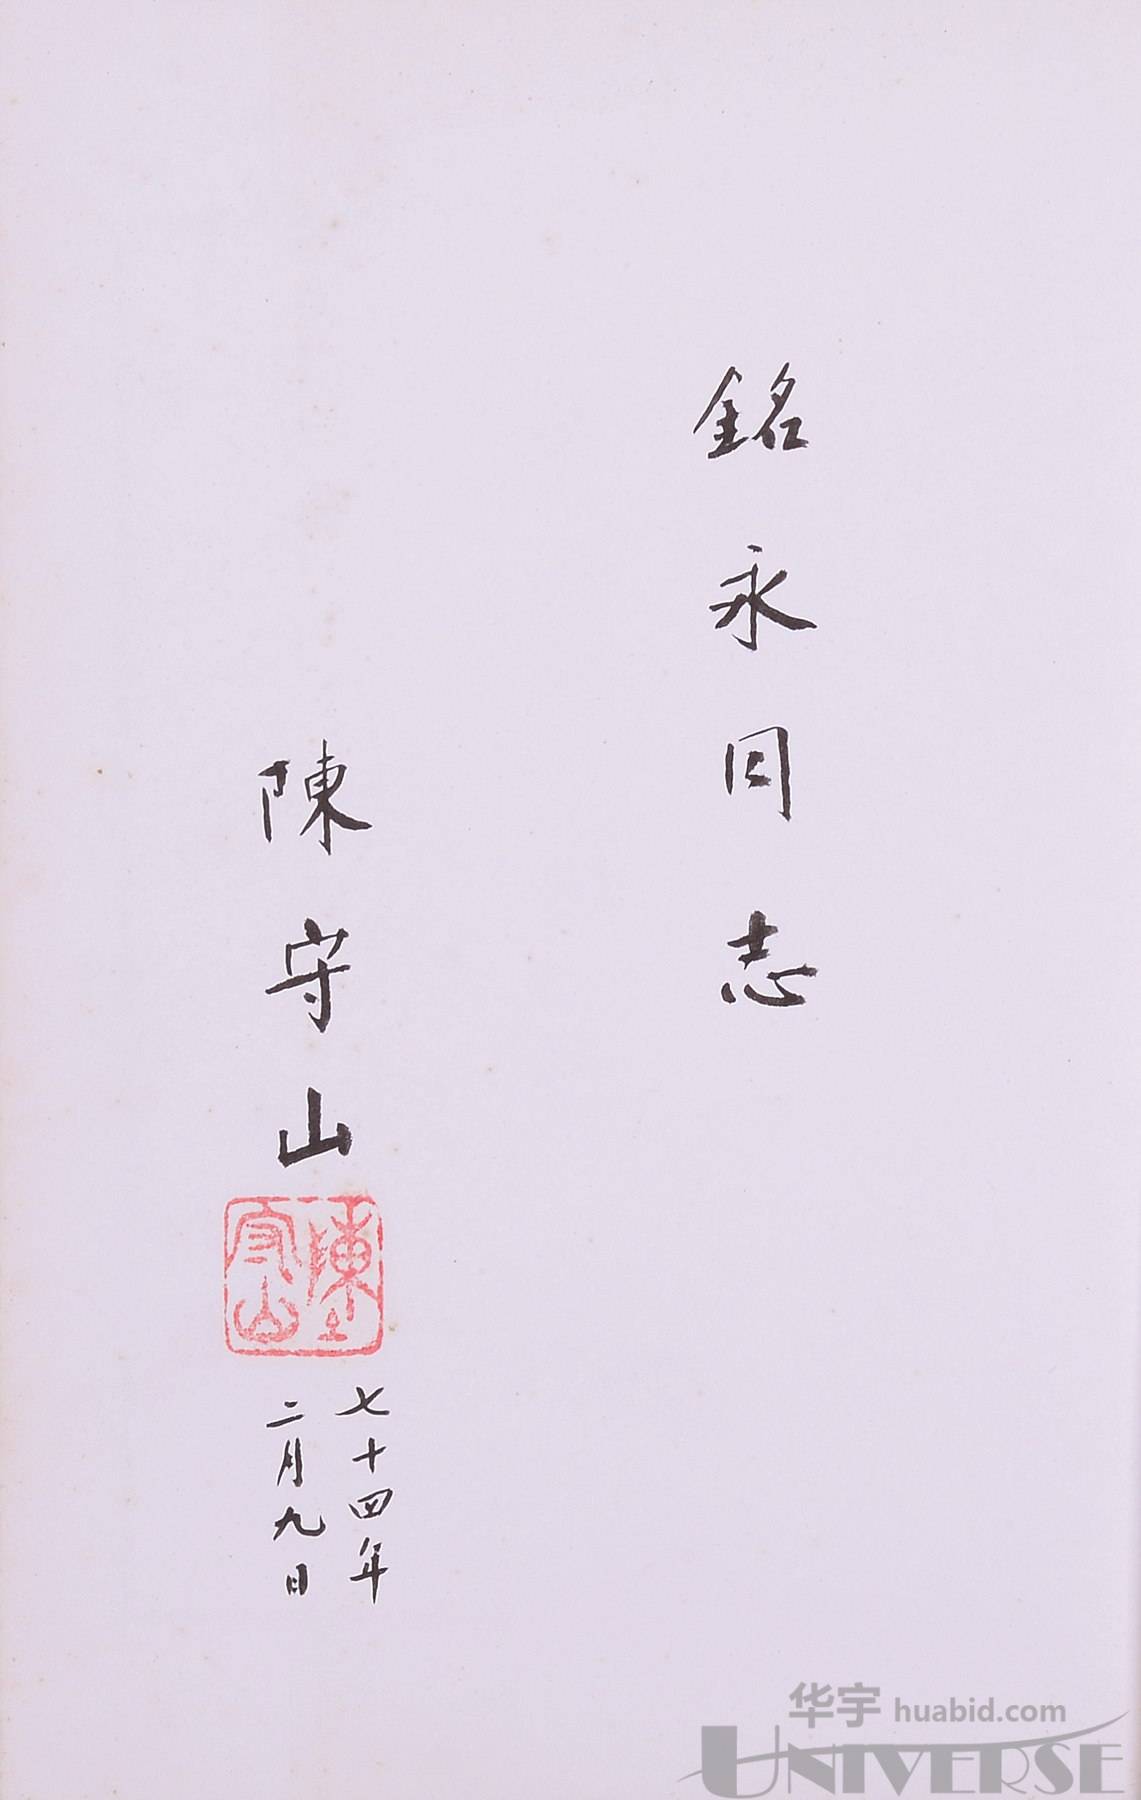 銘永同志
陳守山
陳守山
七十四年
二月九日
华宇 huabid.com
UNIVERSE